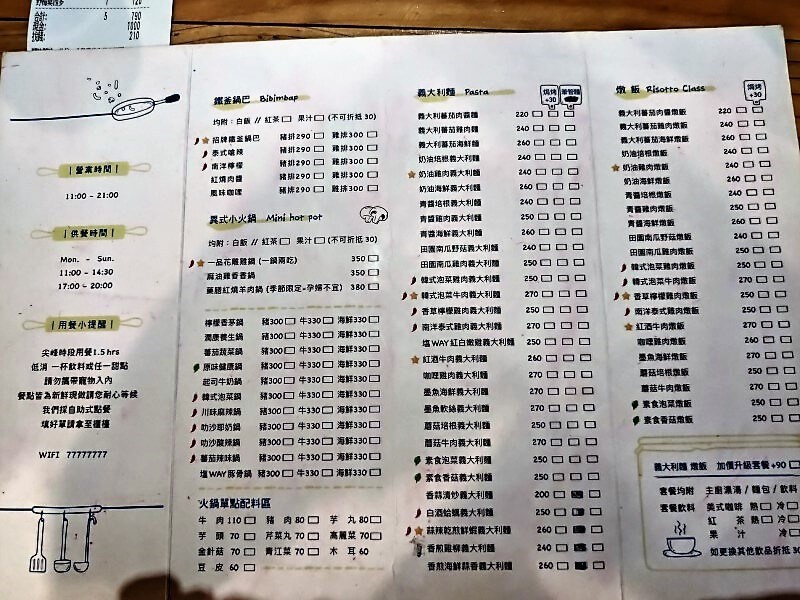 合計: 5 790
現金: 1000
找錢: 210
|營業時間|
11:00 - 21:00
|供餐時間|
Mon. - Sun.
11:00 - 14:30
17:00 - 20:00
|用餐小提醒|
尖峰時段用餐1.5 hrs
低消 一杯飲料或任一甜點
請勿攜帶寵物入內
餐點皆為新鮮現做請您耐心等候
我們採自助式點餐
填好單請拿至櫃檯
WIFI 77777777
鐵釜鍋巴 Bibimbap
均附:白飯 // 紅茶 果汁 (不可折抵30)
招牌鐵釜鍋巴 豬排290 雞排300
泰式椒辣 豬排290 雞排300
南洋檸檬 豬排290 雞排300
紅燒肉醬 豬排290 雞排300
風味咖哩 豬排290 雞排300
異式小火鍋 Mini hot pot
均附:白飯 // 紅茶 果汁 (不可折抵30)
一品花雕雞鍋 (一鍋兩吃) 350
麻油雞香香鍋 350
藥膳紅燒羊肉鍋 (季節限定-孕婦不宜) 380
檸檬香茅鍋 豬300 牛330 海鮮330
潤康養生鍋 豬300 牛330 海鮮330
蕃茄蔬菜鍋 豬300 牛330 海鮮330
原味健康鍋 豬300 牛330 海鮮330
起司牛奶鍋 豬300 牛330 海鮮330
韓式泡菜鍋 豬300 牛330 海鮮330
川味麻辣鍋 豬300 牛330 海鮮330
叻沙椰奶鍋 豬300 牛330 海鮮330
叻沙酸辣鍋 豬300 牛330 海鮮330
蕃茄辣味鍋 豬300 牛330 海鮮330
塩WAY豚骨鍋 豬300 牛330 海鮮330
火鍋單點配料區
牛 肉 110 豬 肉 80 芋 丸 80
芋 頭 70 芹菜丸 70 高麗菜 70
金針菇 70 青江菜 70 木 耳 60
豆 皮 60
義大利麵 Pasta 焗烤+30 筆管麵
義大利蕃茄肉醬麵 220
義大利蕃茄雞肉麵 240
義大利蕃茄海鮮麵 260
奶油培根義大利麵 240
奶油雞肉義大利麵 240
奶油海鮮義大利麵 260
青醬培根義大利麵 240
青醬雞肉義大利麵 240
青醬海鮮義大利麵 260
田園南瓜野菇義大利麵 240
田園南瓜雞肉義大利麵 250
韓式泡菜雞肉義大利麵 250
韓式泡菜牛肉義大利麵 270
香草檸檬雞肉義大利麵 270
南洋泰式雞肉義大利麵 270
塩WAY紅白嫩雞義大利麵 250
紅酒牛肉義大利麵 260
咖哩雞肉義大利麵 250
墨魚海鮮義大利麵 250
墨魚軟絲義大利麵 250
蘑菇培根義大利麵 250
蘑菇牛肉義大利麵 270
素食泡菜義大利麵 250
素食香菇義大利麵 250
香蒜清炒義大利麵 200
白酒蛤蠣義大利麵 250
蒜辣乾煎鮮蝦義大利麵 260
香煎雞柳義大利麵 240
香煎海鮮蒜香義大利麵 260
燉飯 Risotto Class 焗烤+30
義大利蕃茄肉醬燉飯 220
義大利蕃茄雞肉燉飯 240
義大利蕃茄海鮮燉飯 260
奶油培根燉飯 240
奶油雞肉燉飯 240
奶油海鮮燉飯 260
青醬培根燉飯 240
青醬雞肉燉飯 240
青醬海鮮燉飯 260
田園南瓜野菇燉飯 240
田園南瓜雞肉燉飯 250
韓式泡菜雞肉燉飯 250
韓式泡菜牛肉燉飯 270
香草檸檬雞肉燉飯 250
南洋泰式雞肉燉飯 250
紅酒牛肉燉飯 260
咖哩雞肉燉飯 250
墨魚海鮮燉飯 250
蘑菇培根燉飯 250
蘑菇牛肉燉飯 270
素食泡菜燉飯 250
素食香菇燉飯 250
義大利麵 燉飯 加價升級套餐+90
套餐均附 主廚濃湯 / 麵包 / 飲料
套餐飲料 美式咖啡 熱 冷
紅 茶 熱 冷
果 汁 冷
如更換其他飲品折抵30